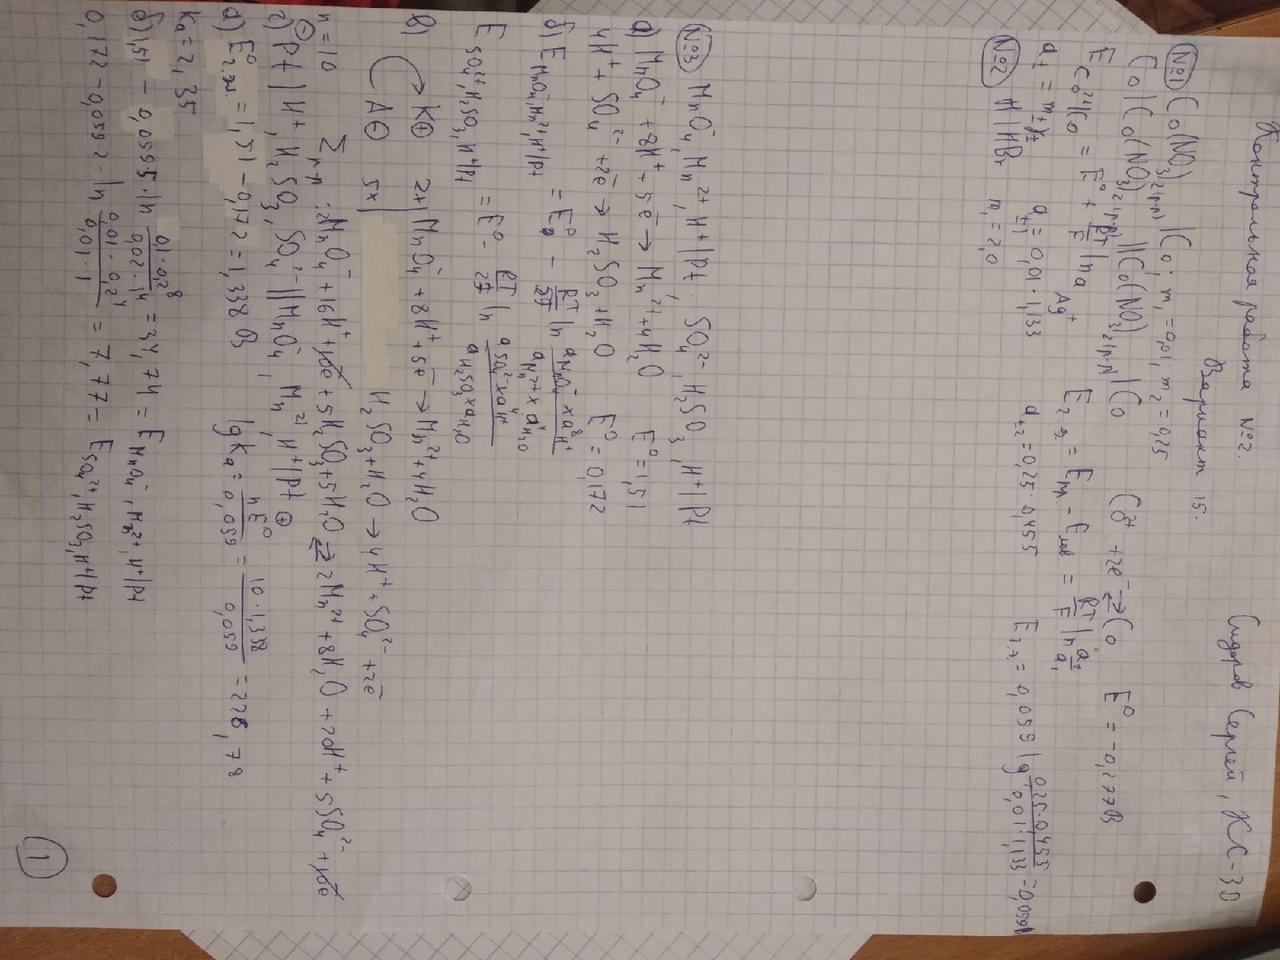 Контрольная работа №2.
Вариант 15. Сидоров Сергей, КС-30
№1 Co(NO3)2(р-р) | Co; m1 = 0,01; m2 = 0,25
Co | Co(NO3)2(р-р) || Co(NO3)2(р-р) | Co Co2+ + 2e- ⇄ Co E0 = -0,277В
E Co2+|Co = E0 + RT/F ln a Ag+ E г.э. = E пр - E лев = RT/F ln a2/a1
a± = m±γ± a±1 = 0,01·1,133 a±2 = 0,25·0,455 E г.э. = 0,059 lg 0,25·0,455/0,01·1,133 = 0,059
№2 H | HBr m1 = 2,0
№3 MnO4-, Mn2+, H+ | Pt; SO42-, H2SO3, H+ | Pt
а) MnO4- + 8H+ + 5e → Mn2+ + 4H2O E0 = 1,51
4H+ + SO42- + 2e → H2SO3 + H2O E0 = 0,172
б) E MnO4-, Mn2+, H+|Pt = E0 - RT/5F ln a MnO4- × a8 H+ / a Mn2+ × a4 H2O
E SO42-, H2SO3, H+|Pt = E0 - RT/2F ln a SO42- × a4 H+ / a H2SO3 × a H2O
в) K⊕ 2× | MnO4- + 8H+ + 5e → Mn2+ + 4H2O
A⊖ 5× | H2SO3 + H2O → 4H+ + SO42- + 2e
n = 10 Σ р-я: 2MnO4- + 16H+ + 10e + 5H2SO3 + 5H2O ⇄ 2Mn2+ + 8H2O + 20H+ + 5SO42- + 10e
г) ⊖ Pt | H+, H2SO3, SO42- || MnO4-, Mn2+, H+ | Pt ⊕
д) E0 г.эл. = 1,51 - 0,172 = 1,338 В lg Ka = nE0/0,059 = 10·1,338/0,059 = 226,78
Ka = 2,35
б) 1,51 - 0,0595·ln 0,1·0,2^8/0,02·1^4 = 37,74 = E MnO4-, Mn2+, H+|Pt
0,172 - 0,0592·ln 0,01·0,2^4/0,01·1 = 7,77 = E SO42-, H2SO3, H+|Pt
1